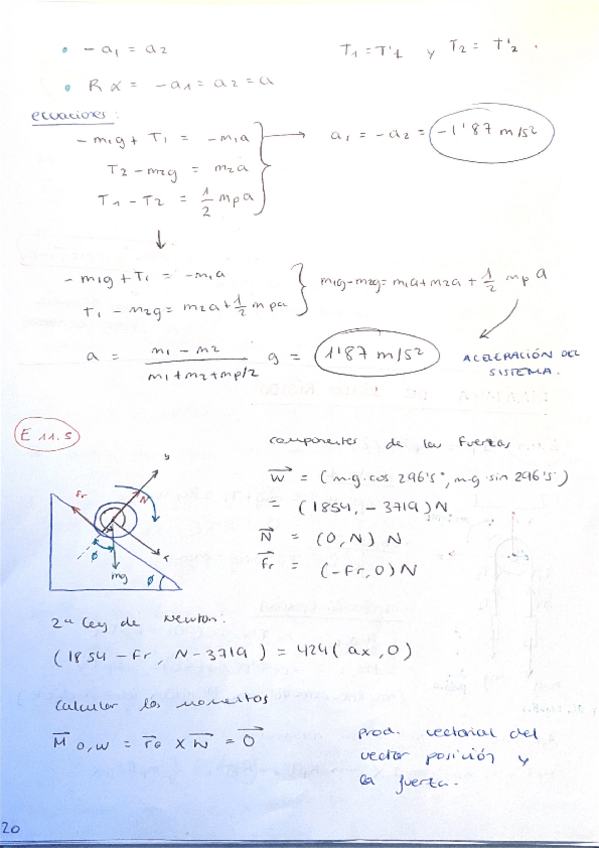 • - a₁ = a₂ T₁ = T'₁ y T₂ = T'₂ .
• R α = - a₁ = a₂ = a
ecuaciones:
- m₁g + T₁ = - m₁a
a₁ = - a₂ = -1'87 m/s²
T₂ - m₂g = m₂a
T₁ - T₂ = 1/2 mₚa
- m₁g + T₁ = - m₁a
m₁g - m₂g = m₁a + m₂a + 1/2 mₚ a
T₁ - m₂g = m₂a + 1/2 mₚa
a = (m₁ - m₂)/(m₁ + m₂ + mₚ/2) g = 1'87 m/s²
ACELERACIÓN DEL
SISTEMA.
E 11.5
componentes de las fuerzas
y
Fr
N
x
mg
ϕ
ϕ
W⃗ = (m·g·cos 296'5°, m·g·sin 296'5°)
= (1854, - 3719) N
N⃗ = (0, N) N
Fr⃗ = (-Fr, 0) N
2ª Ley de Newton:
(1854 - Fr, N - 3719) = 424 (ax, 0)
calcular los momentos
M⃗ o,w = r⃗o × W⃗ = 0⃗
prod. vectorial del
vector posición y
la fuerza.
20